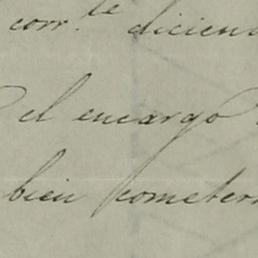 corr.te diciem
el encargo
bien cometer